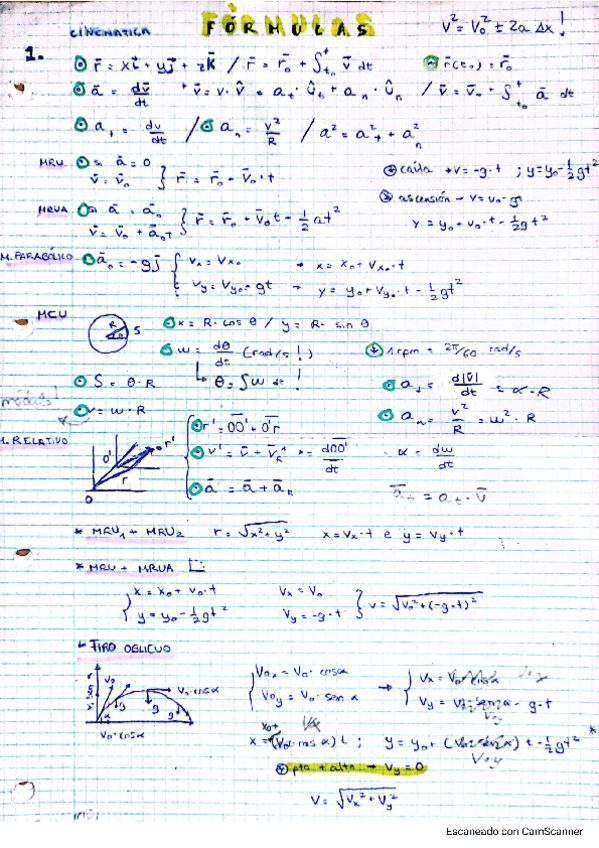 CINEMATICA FÓRMULAS v² = v₀² ± 2a Δx !
1. r̄ = xī + yj̄ + zk̄ / r̄ = r̄₀ + ∫ₜ₀ᵗ v̄ dt r̄(t₀) = r̄₀
ā = dv̄/dt v̄ = v · v̂ = aₜ · ûₜ + aₙ · ûₙ / v̄ = v̄₀ · ∫ₜ₀ᵗ ā dt
aₜ = dv/dt / aₙ = v²/R / a² = a²ₜ + a²ₙ
MRU ā = 0
v̄ = v̄₀ } r̄ = r̄₀ + v̄₀ · t
caída → v = -g · t ; y = y₀ - 1/2 gt²
ascensión → v = v₀ - gt
y = y₀ + v₀ · t - 1/2 gt²
MRUA ā = ā₀
v̄ = v̄₀ + ā₀t } r̄ = r̄₀ + v̄₀t + 1/2 at²
M. PARABÓLICO ā₀ = -gj̄ { vₓ = vₓ₀ → x = x₀ + vₓ₀ · t
vy = vy₀ - gt → y = y₀ + vy₀ · t - 1/2 gt²
MCU
R S
x = R · cos θ / y = R · sin θ
w = dθ/dt (rad/s !) 1 rpm = 2π/60 rad/s
↳ θ = ∫w dt !
S = θ · R
aₜ = d|v̄|/dt = α · R
módulos!
v = w · R
aₙ = v²/R = w² · R
M. RELATIVO
O' r' r O
r' = OO' + O'r
v' = v̄ + v̄R * = dOO'/dt α = dw/dt
ā = ā + āR āₜ = aₜ · v̄
* MRU₁ + MRU₂ r = √x² + y² x = vₓ · t e y = vy · t
* MRU + MRUA
{ x = x₀ + v₀ · t vₓ = v₀
y = y₀ - 1/2 gt² vy = -g · t } v = √v₀² + (-g · t)²
TIRO OBLICUO
v₀ v₀ · cosα g g g α
v₀ · cosα
{ v₀ₓ = v₀ · cosα → { vₓ = v₀ · cosα v₀ₓ
v₀y = v₀ · sen α vy = v₀ · senα - g · t
v₀y
x₀+
x = (v₀ · cos α) t ; y = y₀ + (v₀ · sen α) t - 1/2 gt² *
v₀y
pto + alto → vy = 0
v = √vₓ² + vy²
Escaneado con CamScanner